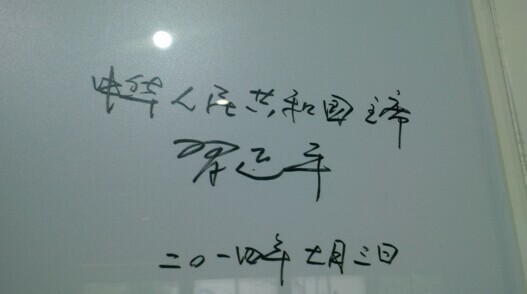 中华人民共和国主席
习近平
二〇一四年七月三日